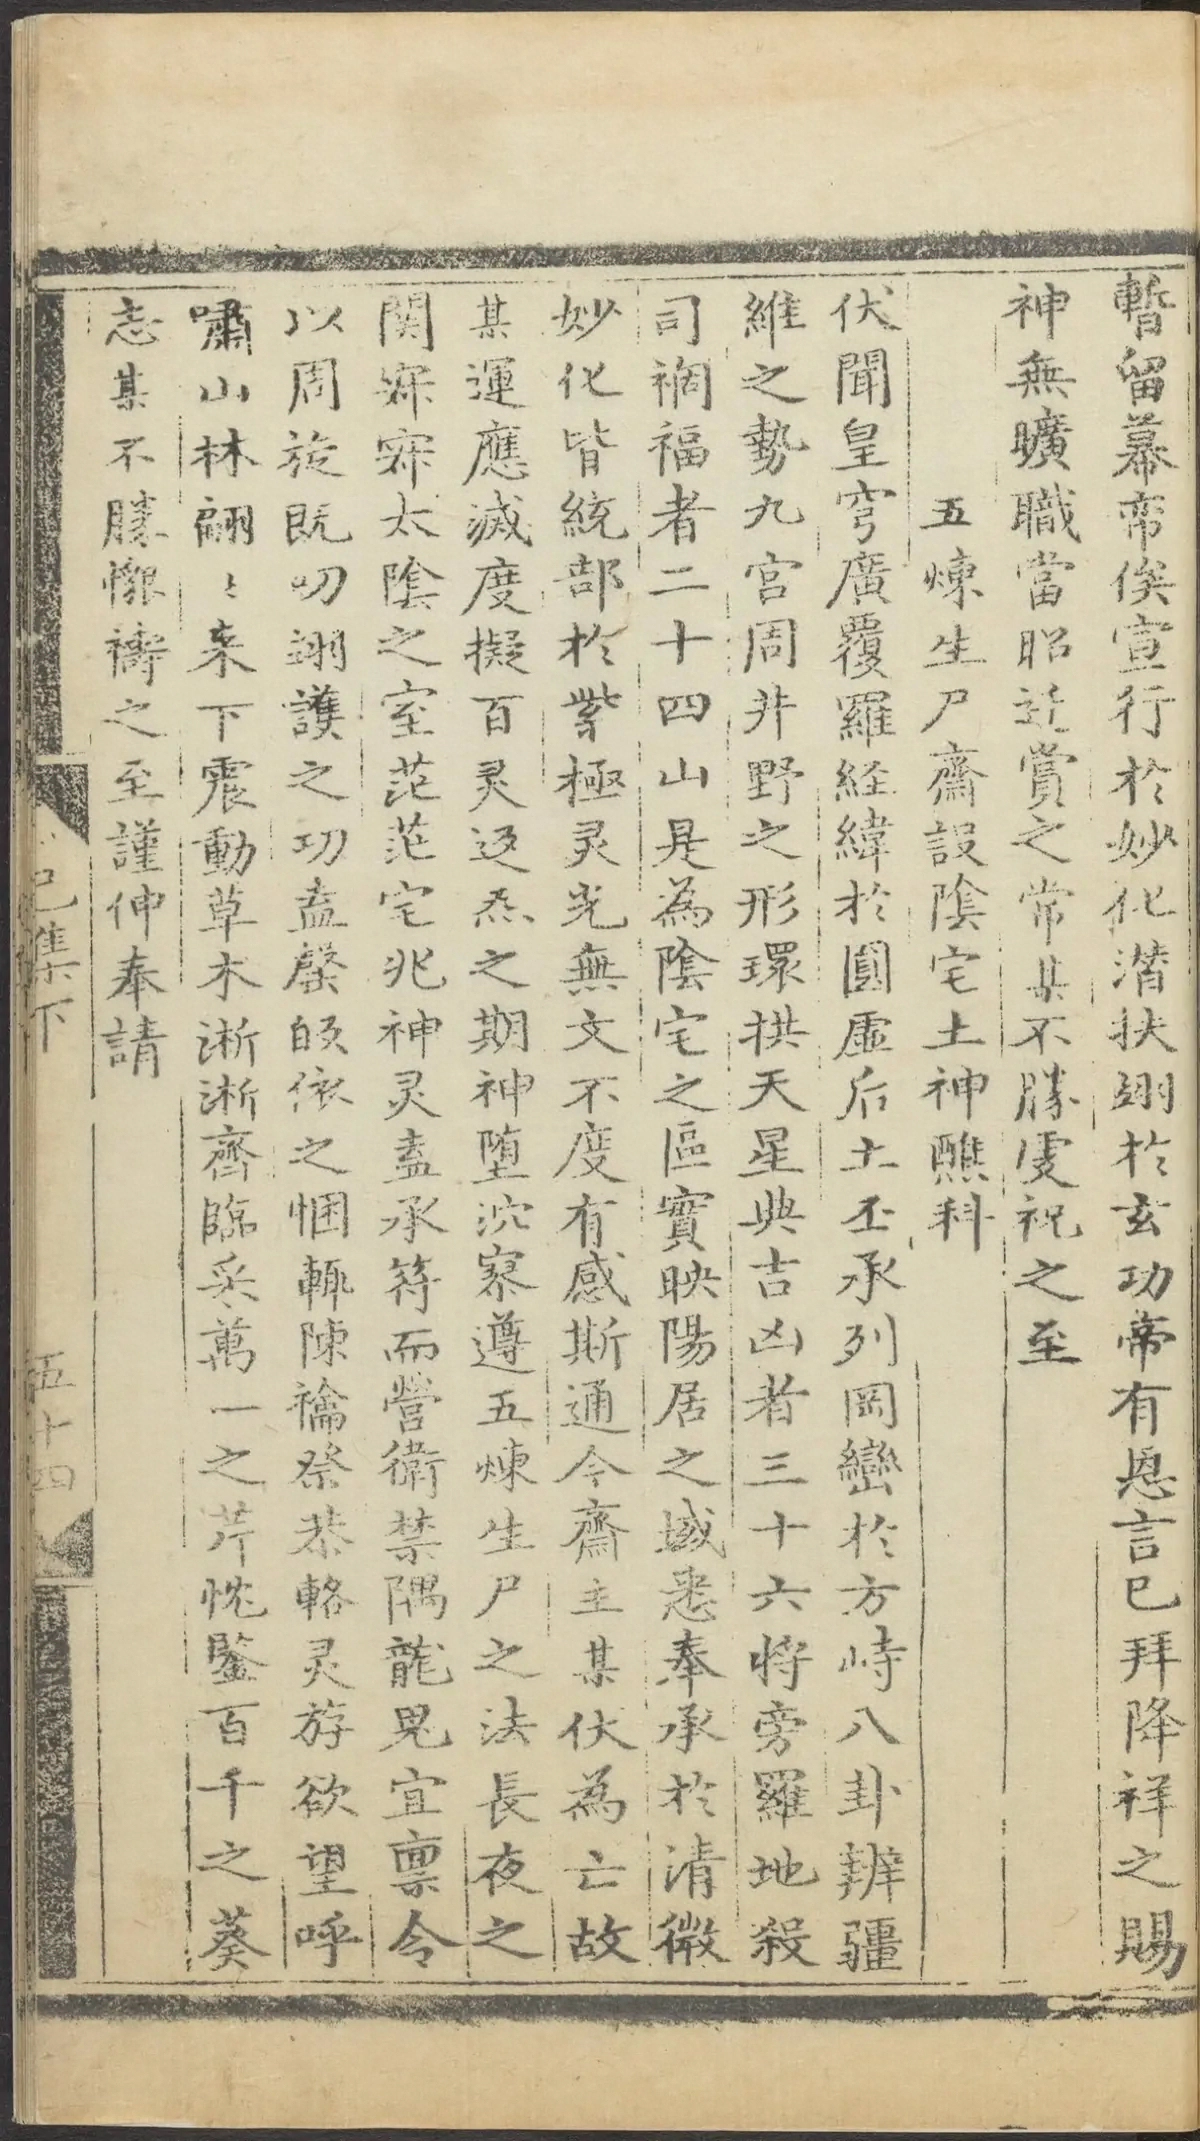 暫留幕帟俟宣行於妙化潛扶翊於玄功帝有恩言已拜降祥之賜
神無曠職當昭迁賞之常某不勝虔祝之至
五煉生尸齋設陰宅土神醮科
伏聞皇穹廣覆羅経緯於圓虛后土丕承列岡巒於方峙八卦辨疆
維之勢九宮周井野之形環拱天星典吉凶者三十六將旁羅地殺
司禍福者二十四山是為陰宅之區實映陽居之域悉奉承於清微
妙化皆統部於紫極灵光無文不度有感斯通今齋主某伏為亡故
某運應滅度擬百灵返炁之期神墮沉寥遵五煉生尸之法長夜之
関寂寂太陰之室茫茫宅兆神灵盍承符而營衛禁隅龍鬼宜禀令
以周旋既叨翊護之功盍罄皈依之悃輒陳禴祭恭輅灵斿欲望呼
嘯山林翩〻来下震動草木淅淅齊臨采萬一之芹忱鑒百千之葵
志某不勝懇禱之至謹伸奉請
已集下
五十四